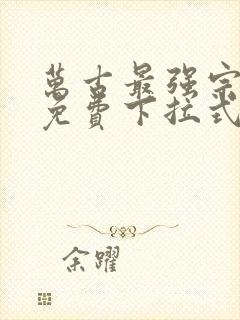 萬古最强宗
免費下拉式
余躍